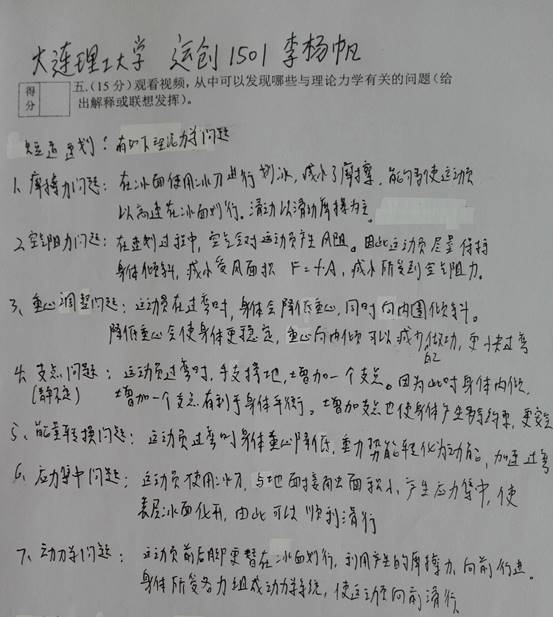 大连理工大学 运创1501 李杨帆
得分
五.(15分)观看视频,从中可以发现哪些与理论力学有关的问题(给
出解释或联想发挥)。
短道速划:有如下理论力学问题
1、摩擦力问题:在冰面使用冰刀进行划冰,减小了摩擦,能够使运动员
以高速在冰面划行。滑动以滑动摩擦为主。
2、空气阻力问题:在速划过程中,空气会对运动员产生风阻。因此运动员尽量保持
身体倾斜,减小受风面积 F=f·A,减小所受到空气阻力。
3、重心调整问题:运动员在过弯时,身体会降低重心,同时向内圈倾斜。
降低重心会使身体更稳定,重心向内倾可以减少做功,更快过弯
4、支点问题:运动员过弯时,手支撑地,增加一个支点。因为此时身体内倾,
(静不定) 增加一个支点有利于身体平衡。增加支点也使身体产生多余约束,更安定
5、能量转换问题:运动员过弯时身体重心降低,重力势能转化为动能,加速过弯
6、应力集中问题:运动员使用冰刀,与地面接触面积小,产生应力集中,使
表层冰面化开,由此可以顺利滑行
7、动力学问题:运动员前后脚更替在冰面划行,利用产生的摩擦力向前行进。
身体所受各力组成动力学系统,使运动员向前滑行